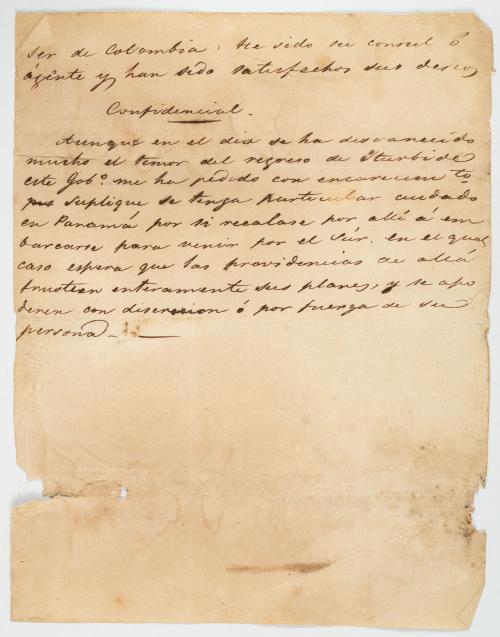 ser de Colombia; he sido su consul ó
agente y han sido satisfechos sus deseos
Confidencial.
Aunque en el dia se ha desvanecido
mucho el temor del regreso de Iturbide
este Gobº. me ha pedido con encarecimto
suplique se tenga particular cuidado
en Panamá por si recalase por allí a em
barcarse para venir por el Súr. en el qual
caso espera que las providencias de allá
frustren enteramente sus planes, y se apo
deren con discrecion ó por fuerza de su
persona